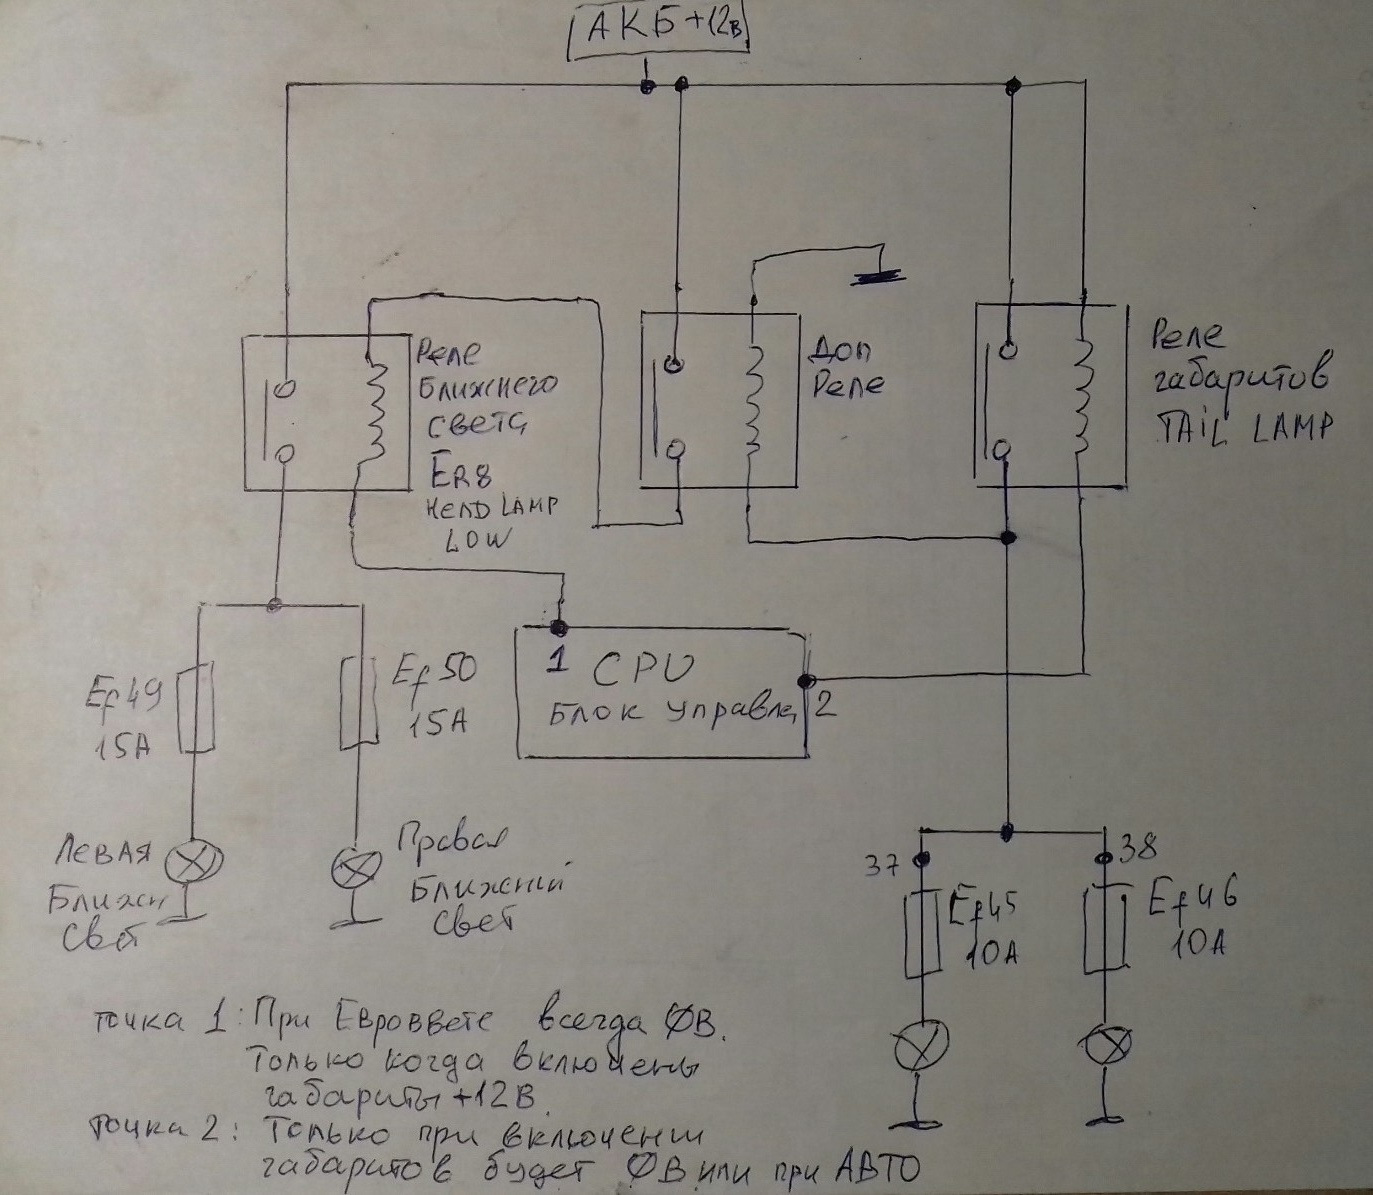 АКБ +12В
Реле
Ближнего
света
ER8
HEAD LAMP
LOW
Доп
Реле
Реле
габаритов
TAIL LAMP
Ef49
15А
Ef50
15А
1 CPU
Блок управле 2
Левая
Ближн
Свет
Правая
Ближний
Свет
37
38
Ef45
10А
Ef46
10А
точка 1: При Евроввете всегда 0В.
Только когда включены
габариты +12В.
точка 2: Только при включении
габаритов будет 0В или при АВТО